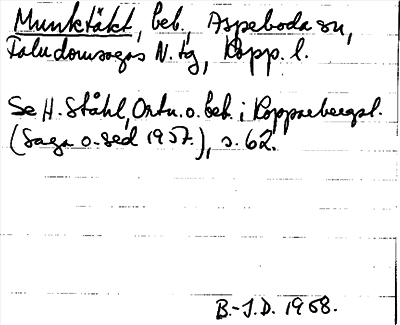 Munktäkt, beb., Aspeboda sn,
Falu domsagas N. tg, Kopp. l.
Se H. Ståhl, Ortn. o. beb. i Kopparbergsl.
(Saga o. sed 1957.), s. 62.
B.-J.D. 1968.